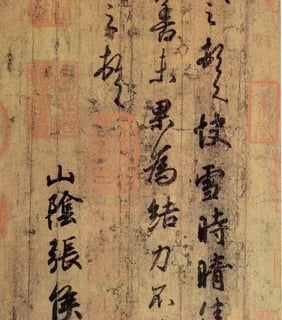 之頓首快雪時晴佳
善未果為結力不
之頓首
山陰張侯